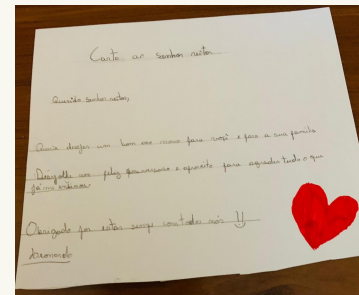 Carta ao senhor reitor
Querido senhor reitor,
Queria desejar um bom ano novo para você e para a sua família
Desejo-lhe um feliz e aproveito para agradecer tudo o que
já me
Obrigado por estar sempre com todos nós :)